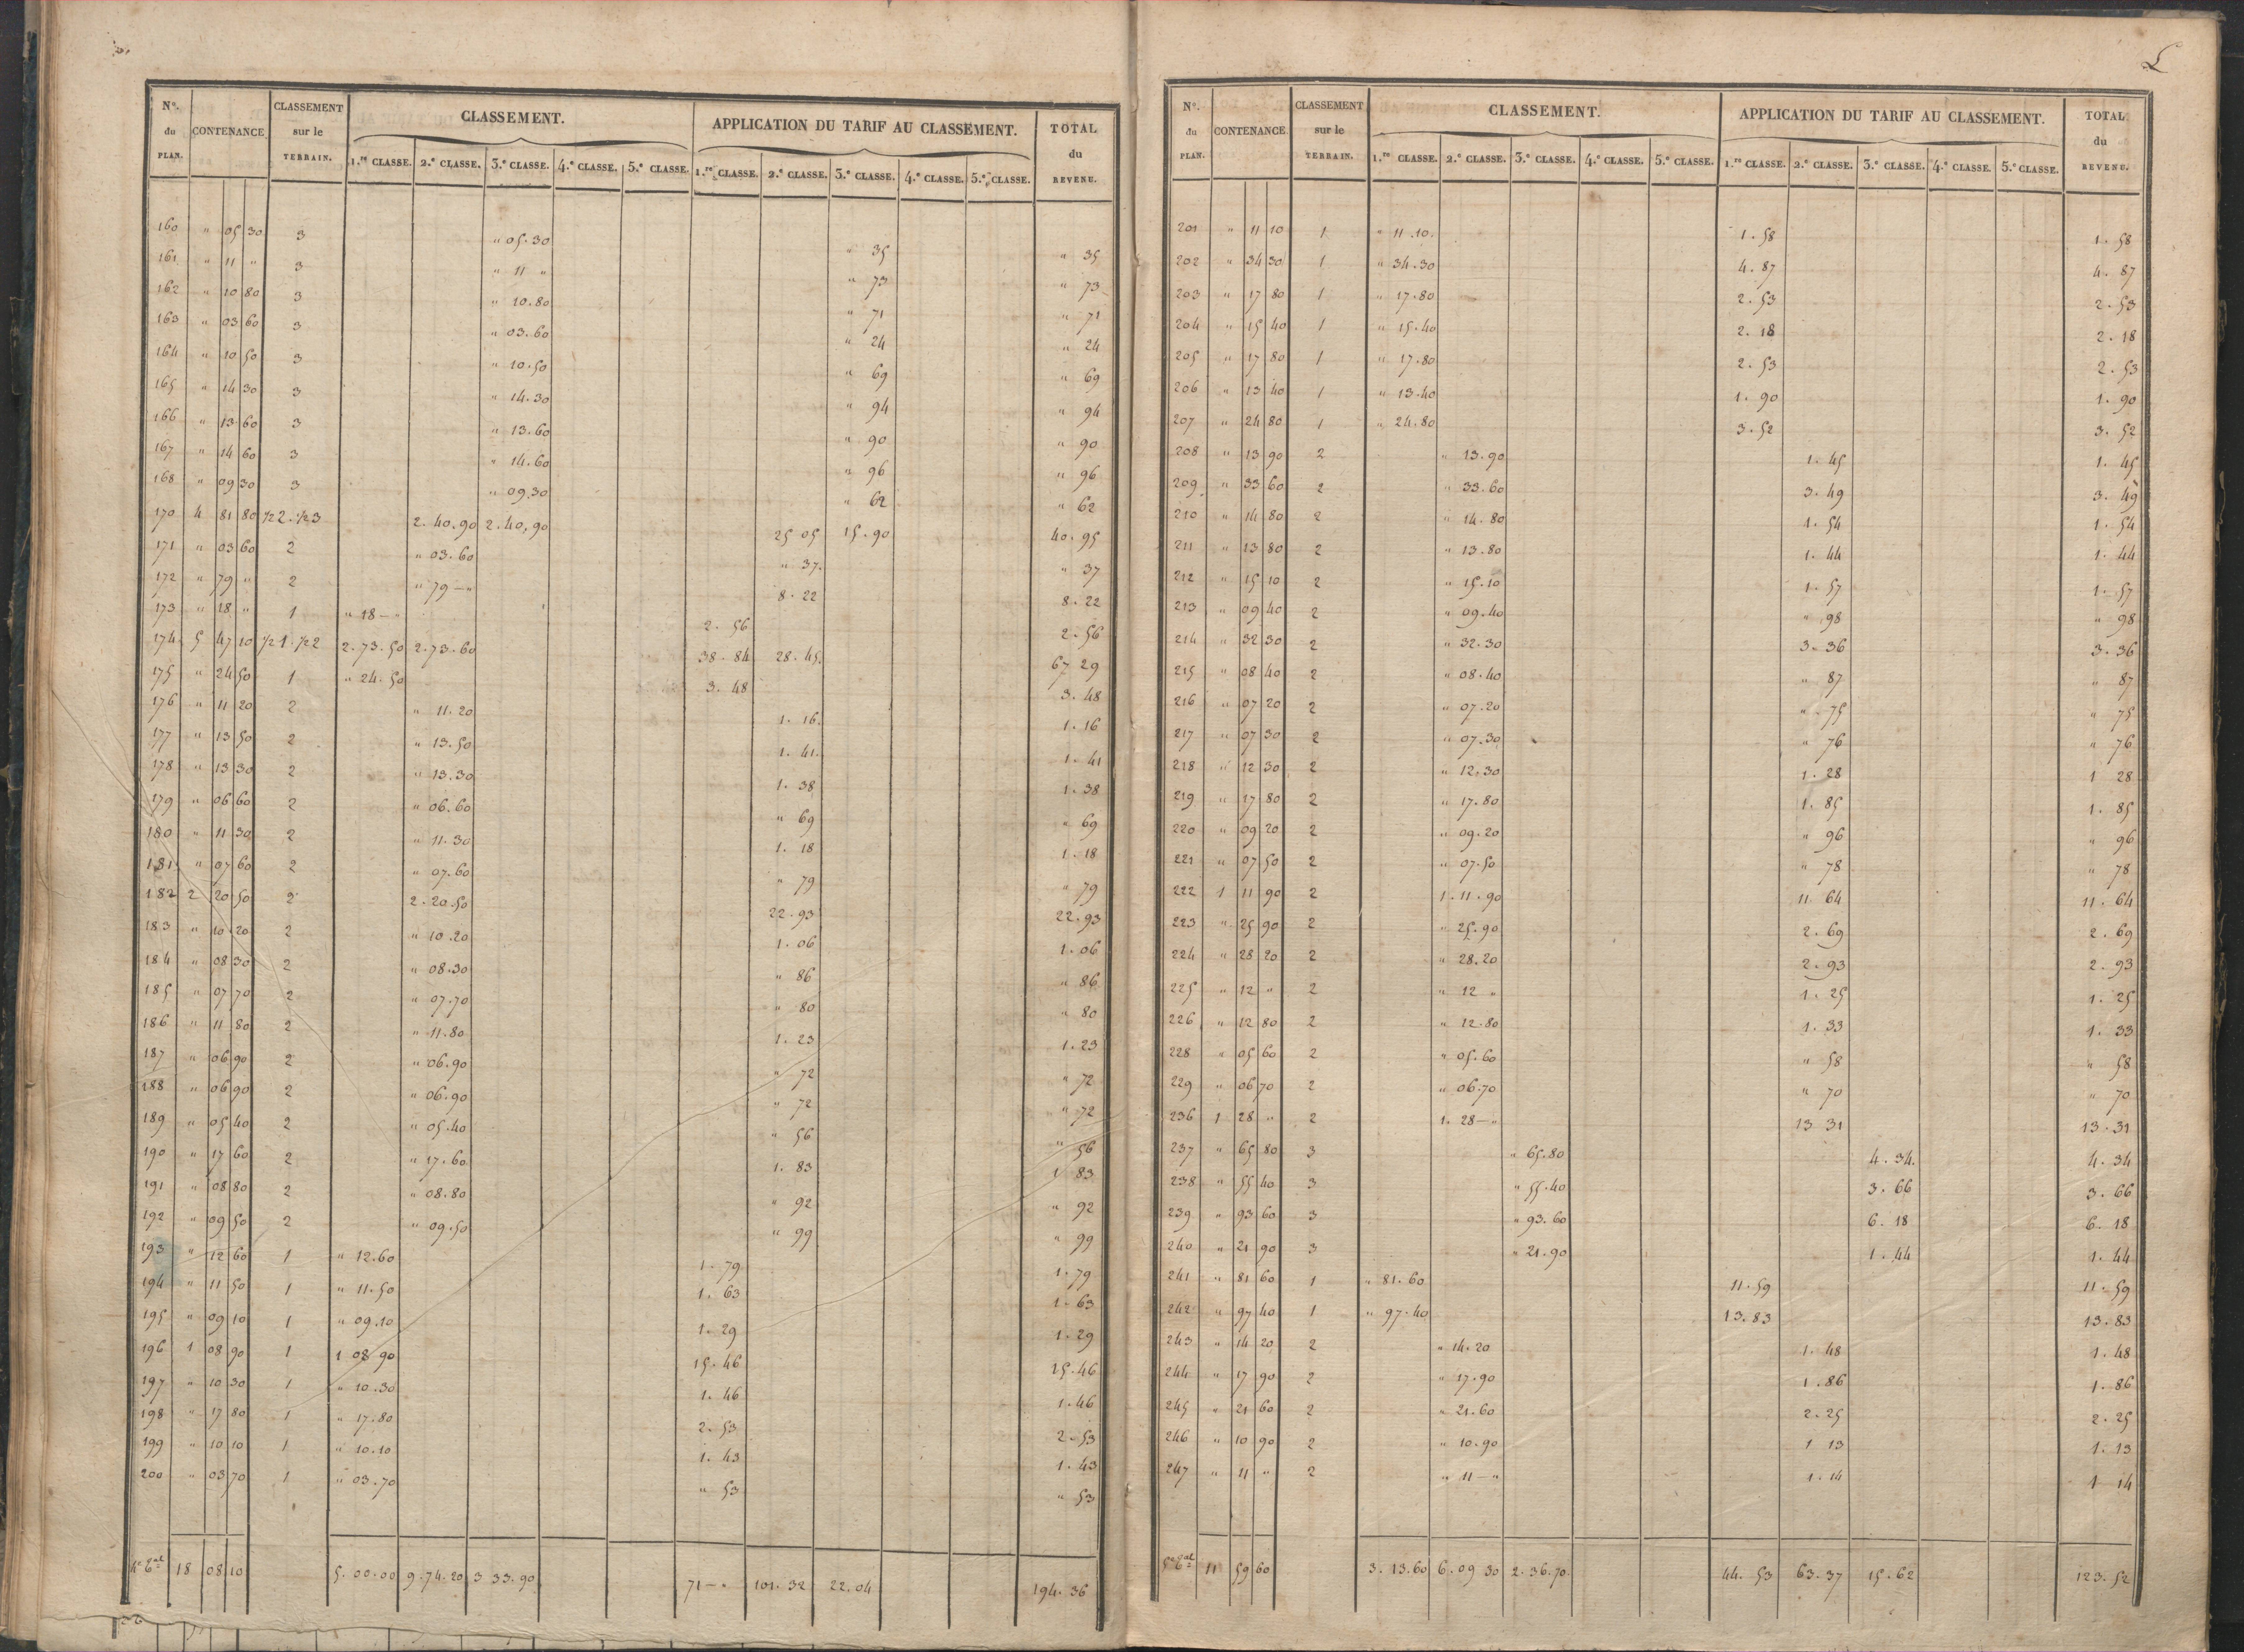 N.º du PLAN. CONTENANCE. CLASSEMENT sur le TERRAIN. CLASSEMENT. APPLICATION DU TARIF AU CLASSEMENT. TOTAL du REVENU.
1.re CLASSE. 2.e CLASSE. 3.e CLASSE. 4.e CLASSE. 5.e CLASSE. 1.re CLASSE. 2.e CLASSE. 3.e CLASSE. 4.e CLASSE. 5.e CLASSE.
160 " 05 30 3 " 05.30 " 35 " 35
161 " 11 " 3 " 11 " " 73 " 73
162 " 10 80 3 " 10.80 " 71 " 71
163 " 03 60 3 " 03.60 " 24 " 24
164 " 10 50 3 " 10.50 " 69 " 69
165 " 14 30 3 " 14.30 " 94 " 94
166 " 13 60 3 " 13.60 " 90 " 90
167 " 14 60 3 " 14.60 " 96 " 96
168 " 09 30 3 " 09.30 " 62 " 62
170 4 81 80 1/2 2. 1/2 3 2.40.90 2.40.90 25 05 15.90 40.95
171 " 03 60 2 " 03.60 " 37. " 37
172 " 79 " 2 " 79 — " 8.22 8.22
173 " 18 " 1 " 18 — " 2.56 2.56
174 5 47 10 1/2 1. 1/2 2 2.73.50 2.73.60 38.84 28.45 67 29
175 " 24 50 1 " 24.50 3.48 3.48
176 " 11 20 2 " 11.20 1.16. 1.16
177 " 13 50 2 " 13.50 1.41. 1.41
178 " 13 30 2 " 13.30 1.38 1.38
179 " 06 60 2 " 06.60 " 69 " 69
180 " 11 30 2 " 11.30 1.18 1.18
181 " 07 60 2 " 07.60 " 79 " 79
182 2 20 50 2 2.20.50 22.93 22.93
183 " 10 20 2 " 10.20 1.06 1.06
184 " 08 30 2 " 08.30 " 86 " 86
185 " 07 70 2 " 07.70 " 80 " 80
186 " 11 80 2 " 11.80 1.23 1.23
187 " 06 90 2 " 06.90 " 72 " 72
188 " 06 90 2 " 06.90 " 72 " 72
189 " 05 40 2 " 05.40 " 56 " 56
190 " 17 60 2 " 17.60 1.83 1 83
191 " 08 80 2 " 08.80 " 92 " 92
192 " 09 50 2 " 09.50 " 99 " 99
193 " 12 60 1 " 12.60 1.79 1.79
194 " 11 50 1 " 11.50 1.63 1.63
195 " 09 10 1 " 09.10 1.29 1.29
196 1 08 90 1 1 08 90 15.46 15.46
197 " 10 30 1 " 10.30 1.46 1.46
198 " 17 80 1 " 17.80 2.53 2.53
199 " 10 10 1 " 10.10 1.43 1.43
200 " 03 70 1 " 03.70 " 53 " 53
4e tal 18 08 10 5.00.00 9.74.20 3 33.90 71 — " 101.32 22.04 194.36
5
N.º du PLAN. CONTENANCE. CLASSEMENT sur le TERRAIN. CLASSEMENT. APPLICATION DU TARIF AU CLASSEMENT. TOTAL du REVENU.
1.re CLASSE. 2.e CLASSE. 3.e CLASSE. 4.e CLASSE. 5.e CLASSE. 1.re CLASSE. 2.e CLASSE. 3.e CLASSE. 4.e CLASSE. 5.e CLASSE.
201 " 11 10 1 " 11.10. 1.58 1.58
202 " 34 30 1 " 34.30 4.87 4.87
203 " 17 80 1 " 17.80 2.53 2.53
204 " 15 40 1 " 15.40 2.18 2.18
205 " 17 80 1 " 17.80 2.53 2.53
206 " 13 40 1 " 13.40 1.90 1.90
207 " 24 80 1 " 24.80 3.52 3.52
208 " 13 90 2 " 13.90 1.45 1.45
209 " 33 60 2 " 33.60 3.49 3.49
210 " 14 80 2 " 14.80 1.54 1.54
211 " 13 80 2 " 13.80 1.44 1.44
212 " 15 10 2 " 15.10 1.57 1.57
213 " 09 40 2 " 09.40 " 98 " 98
214 " 32 30 2 " 32.30 3.36 3.36
215 " 08 40 2 " 08.40 " 87 " 87
216 " 07 20 2 " 07.20 " 75 " 75
217 " 07 30 2 " 07.30 " 76 " 76
218 " 12 30 2 " 12.30 1.28 1 28
219 " 17 80 2 " 17.80 1.85 1.85
220 " 09 20 2 " 09.20 " 96 " 96
221 " 07 50 2 " 07.50 " 78 " 78
222 1 11 90 2 1.11.90 11 64 11.64
223 " 25 90 2 " 25.90 2.69 2.69
224 " 28 20 2 " 28.20 2.93 2.93
225 " 12 " 2 " 12 " 1.25 1.25
226 " 12 80 2 " 12.80 1.33 1.33
228 " 05 60 2 " 05.60 " 58 " 58
229 " 06 70 2 " 06.70 " 70 " 70
236 1 28 " 2 1.28 — " 13 31 13.31
237 " 65 80 3 " 65.80 4.34. 4.34
238 " 55 40 3 " 55.40 3.66 3.66
239 " 93 60 3 " 93.60 6.18 6.18
240 " 21 90 3 " 21.90 1.44 1.44
241 " 81 60 1 " 81.60 11.59 11.59
242 " 97 40 1 " 97.40 13.83 13.83
243 " 14 20 2 " 14.20 1.48 1.48
244 " 17 90 2 " 17.90 1.86 1.86
245 " 21 60 2 " 21.60 2.25 2.25
246 " 10 90 2 " 10.90 1 13 1.13
247 " 11 " 2 " 11 — " 1.14 1 14
5e tal 11 59 60 3.13.60 6.09 30 2.36.70. 44.53 63.37 15.62 123.52